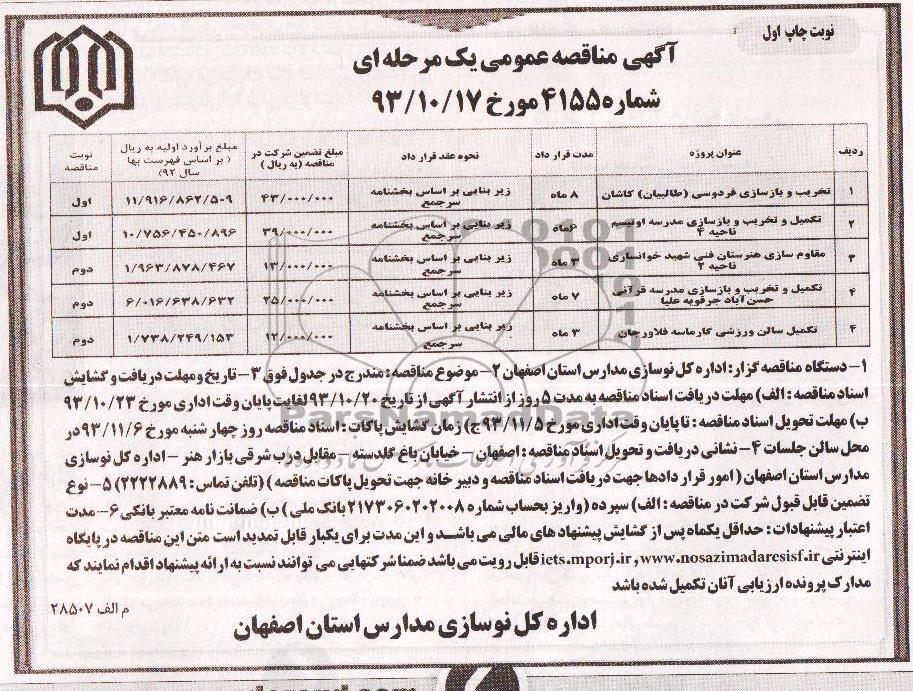 نوبت چاپ اول
آگهی مناقصه عمومی یک مرحله ای
شماره ۴۱۵۵ مورخ ۹۳/۱۰/۱۷
ردیف	عنوان پروژه	مدت قرار داد	نحوه عقد قرار داد	مبلغ تضمین شرکت در مناقصه (به ریال)	مبلغ برآورد اولیه به ریال (بر اساس فهرست بها سال ۹۲)	نوبت مناقصه
۱	تخریب و بازسازی فردوسی (طالبیان) کاشان	۸ ماه	زیر بنایی بر اساس بخشنامه سرجمع	۴۳/۰۰۰/۰۰۰	۱۱/۹۱۶/۸۶۲/۵۰۹	اول
۲	تکمیل و تخریب و بازسازی مدرسه اوتیسم ناحیه ۴	۶ماه	زیر بنایی بر اساس بخشنامه سرجمع	۳۹/۰۰۰/۰۰۰	۱۰/۷۵۶/۴۵۰/۸۹۶	اول
۳	مقاوم سازی هنرستان فنی شهید خوانساری ناحیه ۲	۳ ماه	زیر بنایی بر اساس بخشنامه سرجمع	۱۳/۰۰۰/۰۰۰	۱/۹۶۳/۸۷۸/۴۶۷	دوم
۴	تکمیل و تخریب و بازسازی مدرسه قرآنی حسن آباد جرقویه علیا	۷ ماه	زیر بنایی بر اساس بخشنامه سرجمع	۲۵/۰۰۰/۰۰۰	۶/۰۱۶/۶۳۸/۶۳۲	دوم
۴	تکمیل سالن ورزشی گارماسه فلاورجان	۳ ماه	زیر بنایی بر اساس بخشنامه سرجمع	۱۲/۰۰۰/۰۰۰	۱/۷۳۸/۲۴۹/۱۵۳	دوم
۱- دستگاه مناقصه گزار: اداره کل نوسازی مدارس استان اصفهان ۲- موضوع مناقصه: مندرج در جدول فوق ۳- تاریخ و مهلت دریافت و گشایش
اسناد مناقصه: الف) مهلت دریافت اسناد مناقصه به مدت ۵ روز از انتشار آگهی از تاریخ ۹۳/۱۰/۲۰ لغایت پایان وقت اداری مورخ ۹۳/۱۰/۲۳
ب) مهلت تحویل اسناد مناقصه: تا پایان وقت اداری مورخ ۹۳/۱۱/۵ ج) زمان گشایش پاکات: اسناد مناقصه روز چهار شنبه مورخ ۹۳/۱۱/۶ در
محل سالن جلسات ۴- نشانی دریافت و تحویل اسناد مناقصه: اصفهان - خیابان باغ گلدسته - مقابل درب شرقی بازار هنر - اداره کل نوسازی
مدارس استان اصفهان (امور قرار دادها جهت دریافت اسناد مناقصه و دبیر خانه جهت تحویل پاکات مناقصه) (تلفن تماس: ۲۲۲۲۸۸۹) ۵- نوع
تضمین قابل قبول شرکت در مناقصه: الف) سپرده (واریز بحساب شماره ۲۱۷۳۰۶۰۲۰۲۰۰۸ بانک ملی) ب) ضمانت نامه معتبر بانکی ۶- مدت
اعتبار پیشنهادات: حداقل یکماه پس از گشایش پیشنهاد های مالی می باشد و این مدت برای یکبار قابل تمدید است متن این مناقصه در پایگاه
اینترنتی iets.mporj.ir , www.nosazimadaresisf.ir قابل رویت می باشد ضمنا شرکتهایی می توانند نسبت به ارائه پیشنهاد اقدام نمایند که
مدارک پرونده ارزیابی آنان تکمیل شده باشد
م الف ۲۸۵۰۷
اداره کل نوسازی مدارس استان اصفهان
ParsNamadData